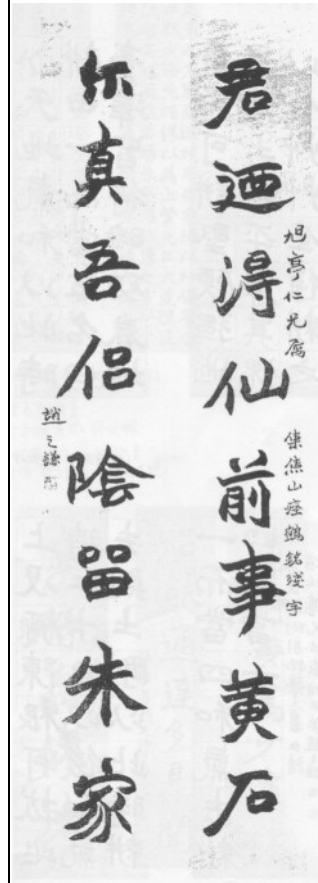 君迺淂仙前事黄石
旭亭仁兄属
集焦山瘗鶴銘殘字
尔真吾侣陰畱朱家
趙之謙